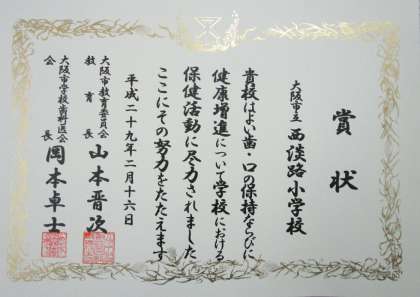 賞状
大阪市立 西淡路小学校
貴校はよい歯・口の保持ならびに
健康増進について学校における
保健活動に尽力されました
ここにその努力をたたえます
平成二十九年二月十六日
大阪市教育委員会
教育長 山本晋次
大阪市学校歯科医会
会長 岡本卓士